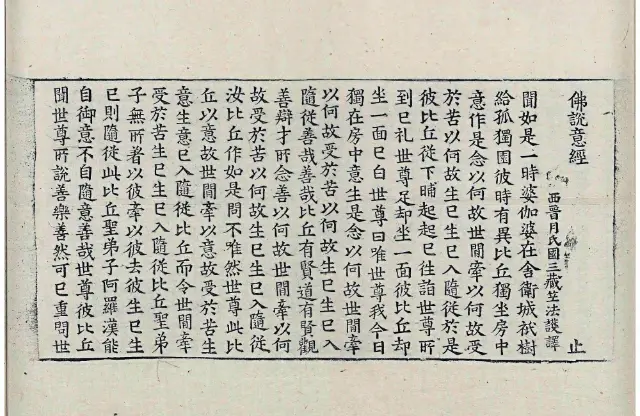 佛說意經　止
西晉月氏國三藏竺法護譯
聞如是一時婆伽婆在舍衛城祇樹
給孤獨園彼時有異比丘獨坐房中
意作是念以何故世間牽以何故受
於苦以何故生已生已入隨從於是
彼比丘從下晡起起已往詣世尊所
到已礼世尊足却坐一面彼比丘却
坐一面已白世尊曰唯世尊我今日
獨在房中意生是念以何故世間牽
以何故受於苦以何故生已生已入
隨從善哉善哉比丘有賢道有賢觀
善辯才所念善以何故世間牽以何
故受於苦以何故生已生已入隨從
汝比丘作如是問不唯然世尊此比
丘以意故世間牽以意故受於苦生
意生意已入隨從比丘而令世間牽
受於苦生已生已入隨從比丘聖弟
子無所著以彼牽以彼去彼生已生
已則隨從此比丘聖弟子阿羅漢能
自御意不自隨意善哉世尊彼比丘
聞世尊所說善樂善然可已重問世